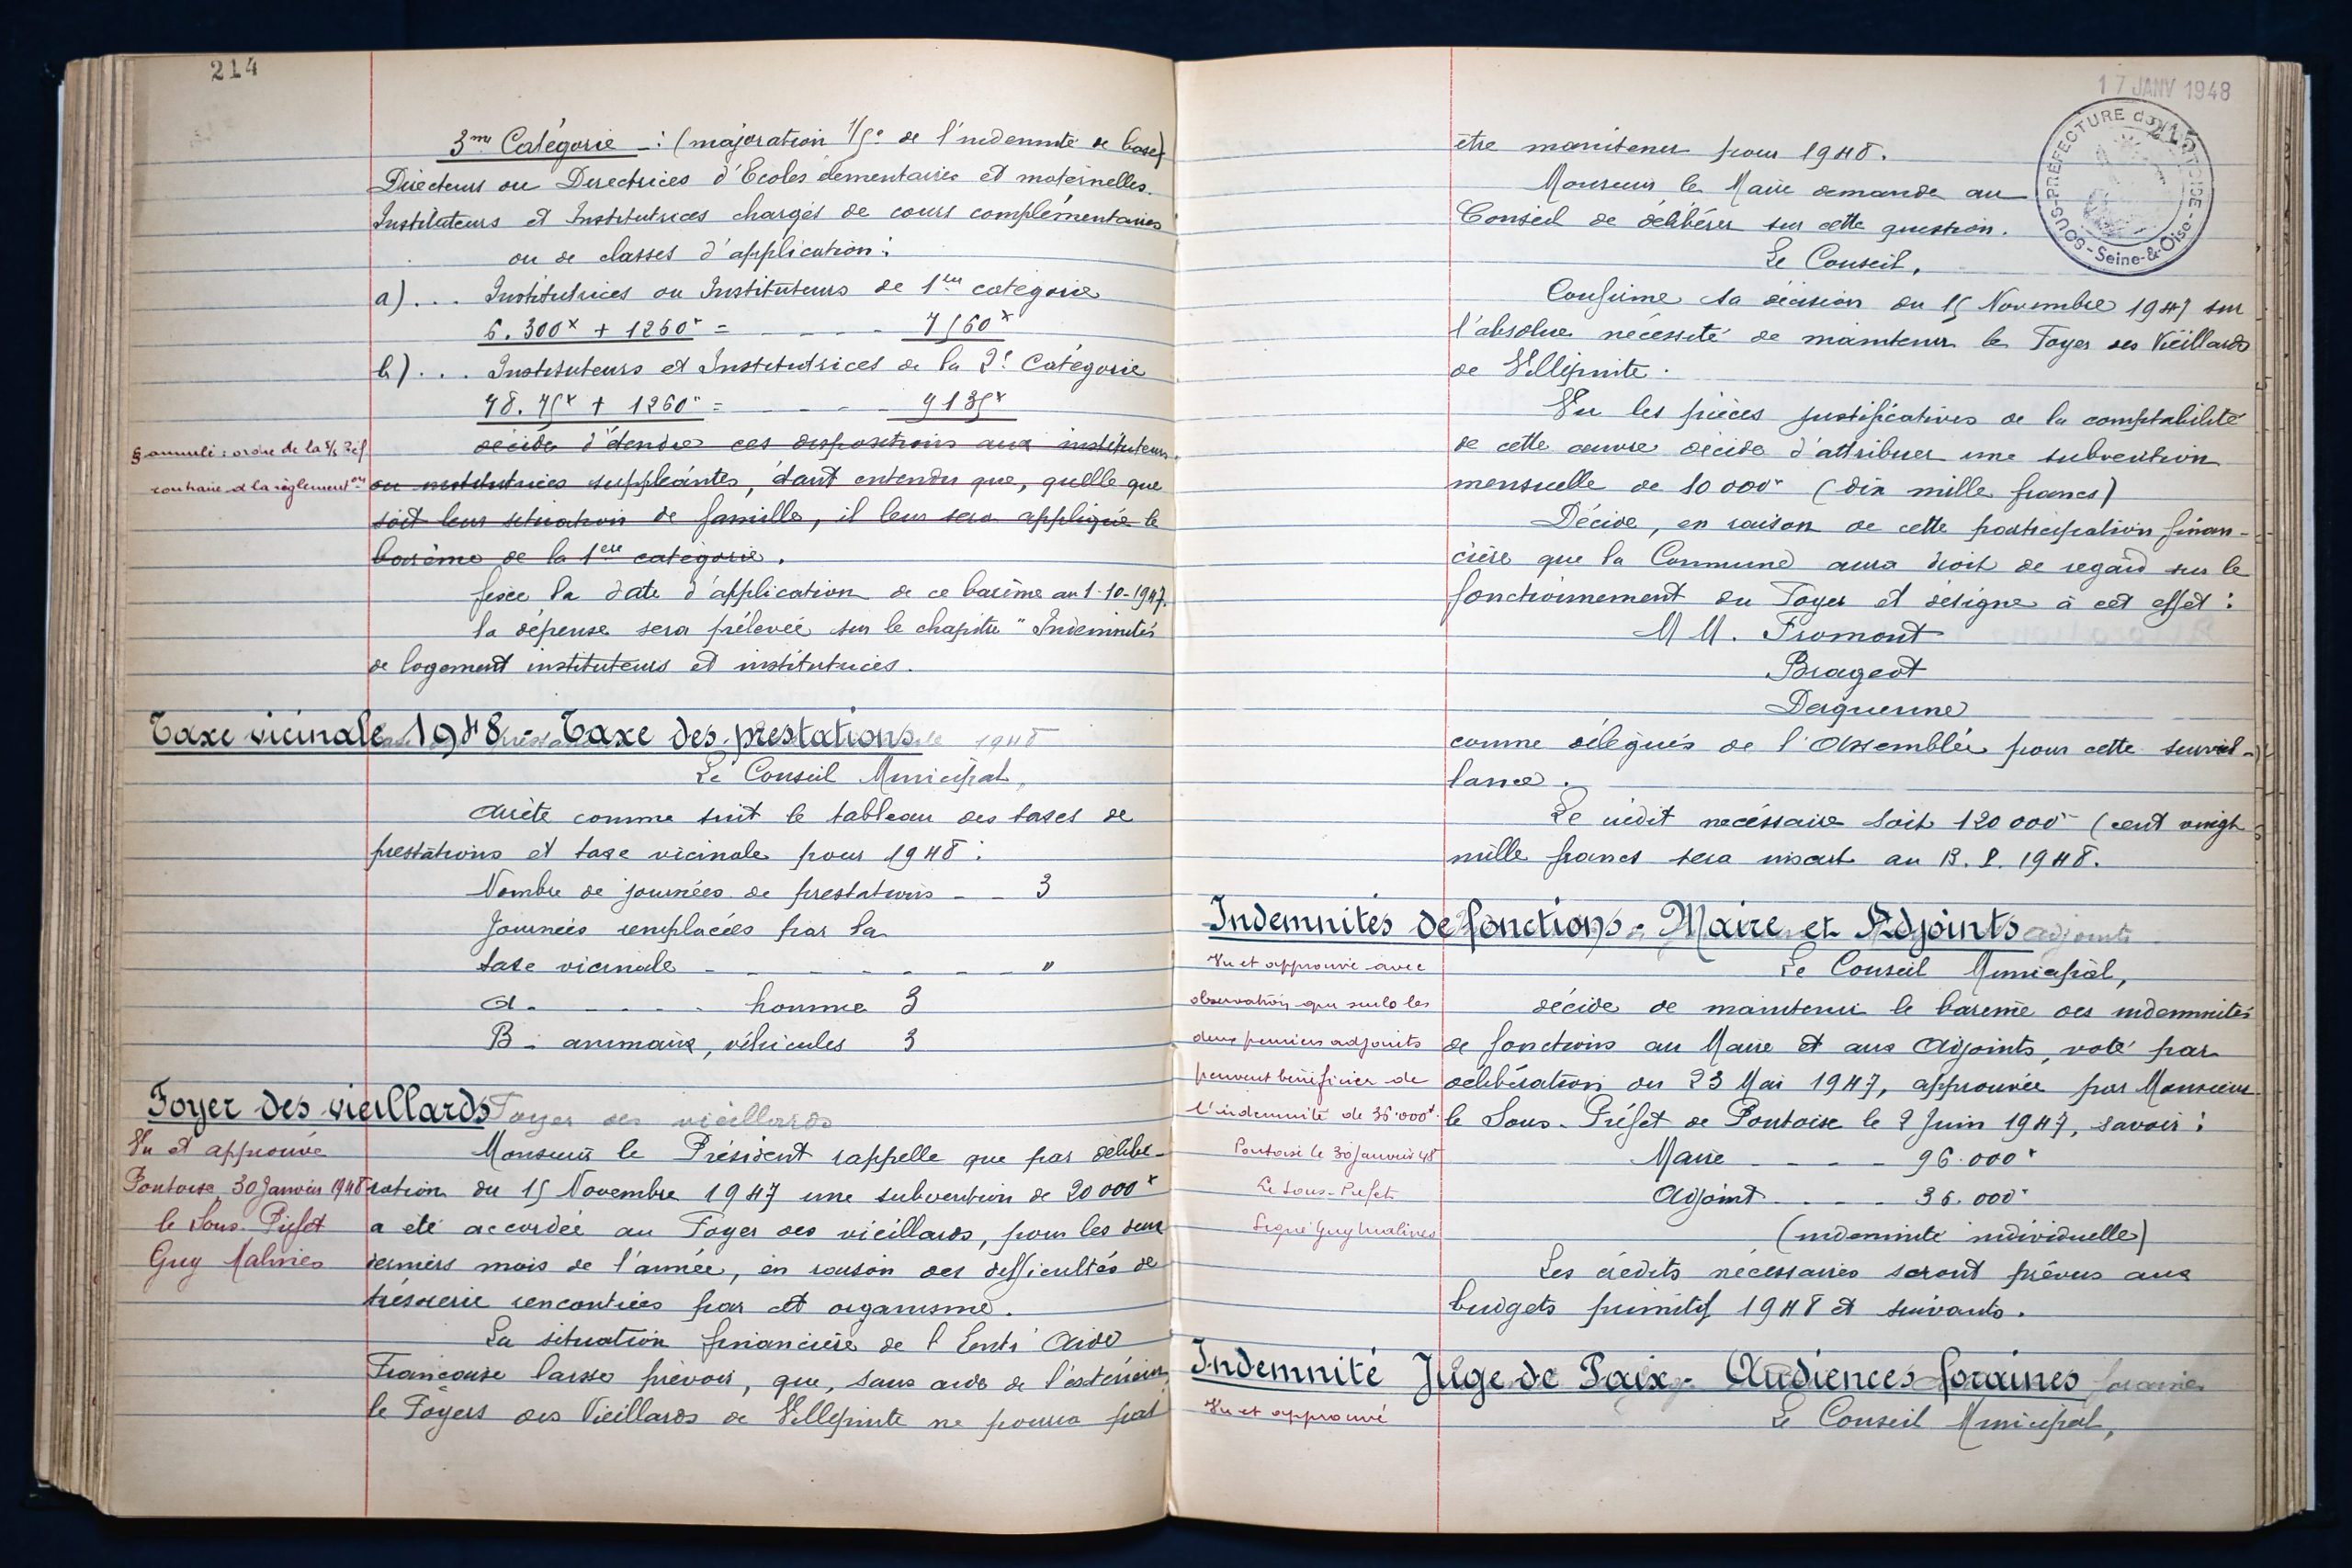 214
3me Catégorie _ : (majoration 1/5e de l'indemnité de base)
Directeurs ou Directrices d'Ecoles élémentaires et maternelles.
Instituteurs et Institutrices chargés de cours complémentaires
ou de classes d'application :
a) . . . Institutrices ou Instituteurs de 1ère catégorie
6.300 + 1260 = - - - - 7560
b) . . . Instituteurs et Institutrices de la 2e Catégorie
78.75 + 1260 = - - - - 9135
§ annulé : ordre de la S/Préf.
contraire à la règlementon
décide d'étendre ces dispositions aux instituteurs
ou institutrices suppléantes, étant entendu que, quelle que
soit leur situation de famille, il leur sera appliqué le
barême de la 1ere catégorie.
fixée la date d'application de ce barême au 1-10-1947.
la dépense sera prélevée sur le chapitre "Indemnités
de logement instituteurs et institutrices.
Taxe vicinale 1948 - Taxe des prestations
1948
Le Conseil Municipal,
Arrête comme suit le tableau des taxes de
prestations et taxe vicinale pour 1948 :
Nombre de journées de prestations - - 3
Journées remplacées par la
taxe vicinale - - - - - - - "
A - - - - - homme 3
B - animaux, véhicules 3
Foyer des vieillards
Foyer des vieillards
Vu et approuvé
Pontoise 30 Janvier 1948
le Sous-Préfet
Guy Malines
Monsieur le Président rappelle que par délibé-
ration du 15 Novembre 1947 une subvention de 20000
a été accordée au Foyer des vieillards, pour les deux
derniers mois de l'année, en raison des difficultés de
trésorerie rencontrées par cet organisme.
La situation financière de l'Entr'Aide
Française laisse prévoir, que, sans aide de l'extérieur,
le Foyers des Vieillards de Villepinte ne pourra pas
17 JANV 1948
SOUS-PRÉFECTURE de PONTOISE - Seine-&-Oise -
être maintenu pour 1948.
Monsieur le Maire demande au
Conseil de délibérer sur cette question.
Le Conseil,
Confirme sa décision du 15 Novembre 1947 sur
l'absolue nécessité de maintenir le Foyer des Vieillards
de Villepinte.
Vu les pièces justificatives de la comptabilité
de cette œuvre décide d'attribuer une subvention
mensuelle de 10000 (dix mille francs)
Décide, en raison de cette participation finan-
cière que la Commune aura droit de regard sur le
fonctionnement du Foyer et désigne à cet effet :
M M. Fromont
Brageot
Derquenne
comme délégués de l'Assemblée pour cette surveil-
lance.
Le crédit nécessaire soit 120000 (cent vingt
mille francs sera inscrit au B. P. 1948.
Indemnités de fonctions - Maire et Adjoints
adjoints
Vu et approuvé avec
observation que seuls les
deux premiers adjoints
peuvent bénéficier de
l'indemnité de 36.000
Pontoise le 30 Janvier 48
Le Sous-Préfet
Signé Guy Malines
Le Conseil Municipal,
décide de maintenir le barême des indemnités
de fonctions au Maire et aux Adjoints, voté par
délibération du 23 Mai 1947, approuvée par Monsieur
le Sous-Préfet de Pontoise le 2 Juin 1947, savoir :
Maire - - - - 96.000
Adjoint - - - - 36.000
(indemnité individuelle)
Les crédits nécessaires seront prévus aux
budgets primitif 1948 et suivants.
Indemnité Juge de Paix - Audiences foraines
foraines
Vu et approuvé
Le Conseil Municipal,